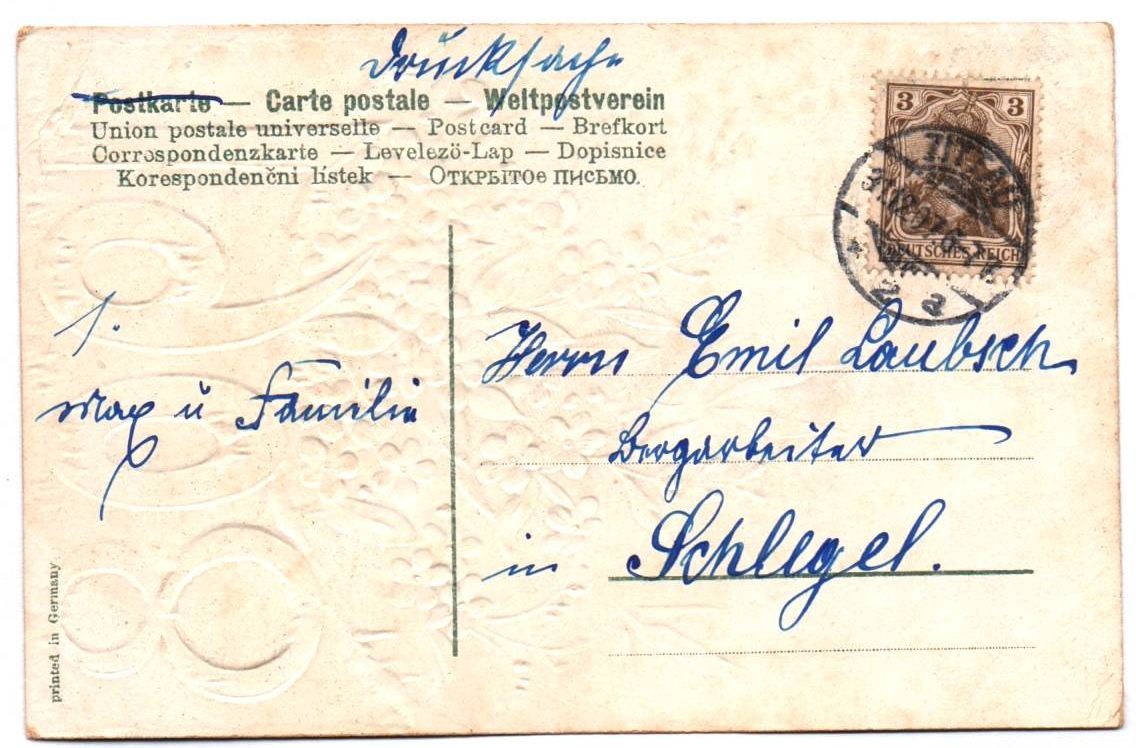 Drucksache
Postkarte — Carte postale — Weltpostverein
Union postale universelle — Postcard — Brefkort
Correspondenzkarte — Levelező-Lap — Dopisnice
Korespondenčni lístek — Открытое письмо.
3 3
DEUTSCHES REICH
ZITTAU
31.12.07.
2 a
Max u Familie
Herrn Emil Laubsch
Bergarbeiter
in Schlegel.
printed in Germany